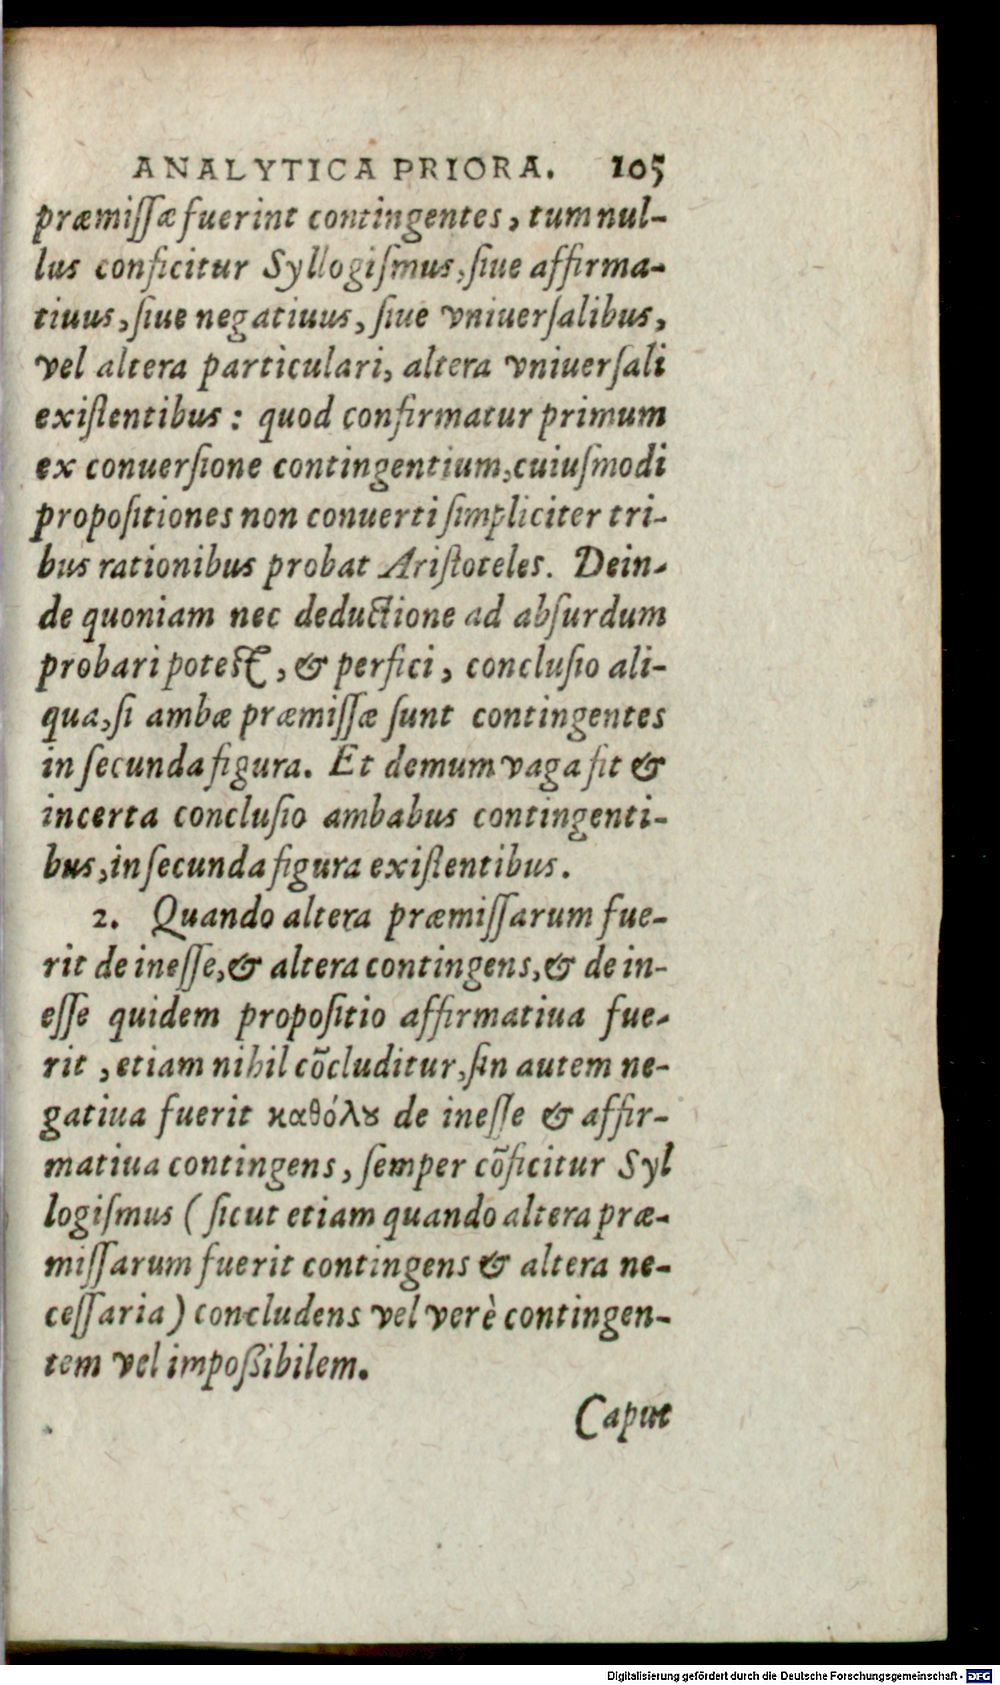 ANALYTICA PRIORA. 105
præmiſſæ fuerint contingentes, tum nul-
lus conficitur Syllogiſmus, ſiue affirma-
tiuus, ſiue negatiuus, ſiue vniuerſalibus,
vel altera particulari, altera vniuerſali
exiſtentibus: quod confirmatur primum
ex conuerſione contingentium, cuiuſmodi
propoſitiones non conuerti ſimpliciter tri-
bus rationibus probat Ariſtoteles. Dein-
de quoniam nec deductione ad abſurdum
probari poteſt, & perfici, concluſio ali-
qua, ſi ambæ præmiſſæ ſunt contingentes
in ſecunda figura. Et demum vaga fit &
incerta concluſio ambabus contingenti-
bus, in ſecunda figura exiſtentibus.
2. Quando altera præmiſſarum fue-
rit de ineſſe, & altera contingens, & de in-
eſſe quidem propoſitio affirmatiua fue-
rit, etiam nihil cõcluditur, ſin autem ne-
gatiua fuerit καθόλȣ de ineſſe & affir-
matiua contingens, ſemper cõficitur Syl
logiſmus (ſicut etiam quando altera præ-
miſſarum fuerit contingens & altera ne-
ceſſaria) concludens vel verè contingen-
tem vel impoßibilem.
Caput
Digitalisierung gefördert durch die Deutsche Forschungsgemeinschaft - DFG